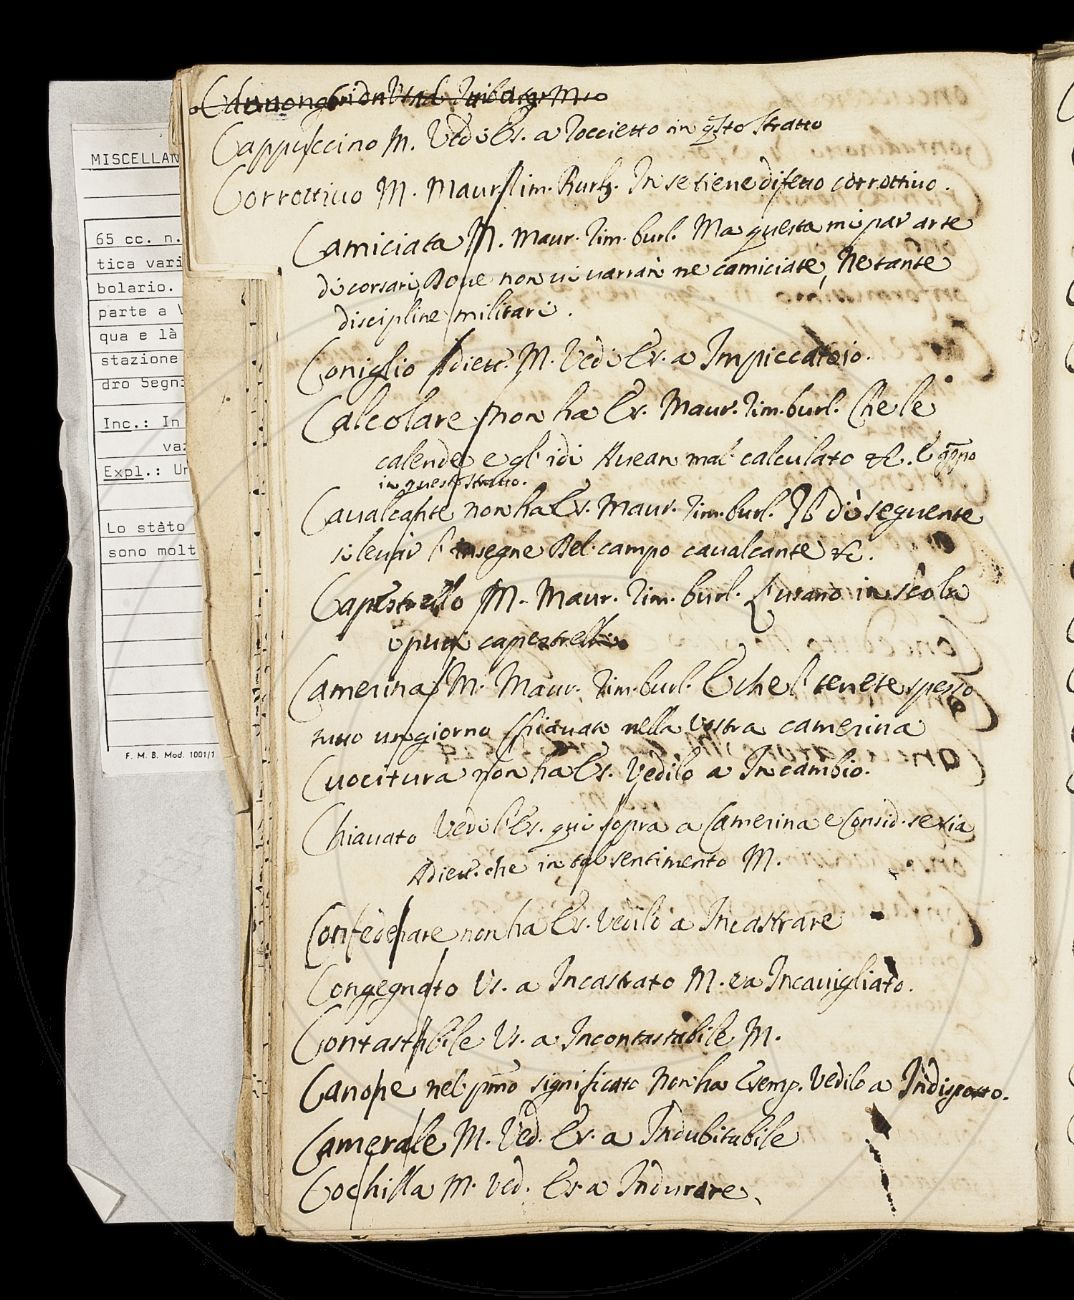 MISCELLAN
65 cc. n.
tica vari
bolario.
parte a V
qua e là
stazione
dro Segni
Inc.: In
vaz
Expl.: Un
Lo stàto
sono molt
F. M. B. Mod. 1001/1
Cappuccino M. Ved. Es. a Toccietto in qsto stratto
Corrottivo M. Maur. lim. Burl. In se tiene difetto corrottivo.
Camiciata M. Maur. Tim. burl. Ma questa mi par' arte
di corsari, Dove non vi varrian ne camiciate, Ne tante
discipline militari.
Coniglio Adiett. M. Vedi Es. a Impiccatoio.
Calcolare non ha Es. Maur. Tim. burl. Che le
calende e gl'idi Avean mal calculato &c. E
in questo stratto.
Cavalcante non ha Es. Maur. Tim. burl. Il dì seguente
l'insegne Bel campo cavalcante &c.
Capestrello M. Maur. Tim. burl. L'usano in scola
i putti capestrelli.
Camerina M. Maur. Tim. burl. E che 'l tenete spesso
tutto un giorno Chiavato nella vostra camerina
Cuocitura non ha Es. Vedilo a Incambio.
Chiavato Vedi l'Es. qui sopra a Camerina e Consid. se sia
Adiett. che in tal sentimento M.
Confederare non ha Es. Vedilo a Incastrare
Congegnato Vs. a Incastrato M. ea Incavigliato.
Contastabile Vs. a Incontastabile M.
Canope nel pmo significato Non ha Esemp. Vedilo a Indisposto.
Camerale M. Ved. Es. a Indubitabile
Cochilla M. Ved. Es. a Indurare.